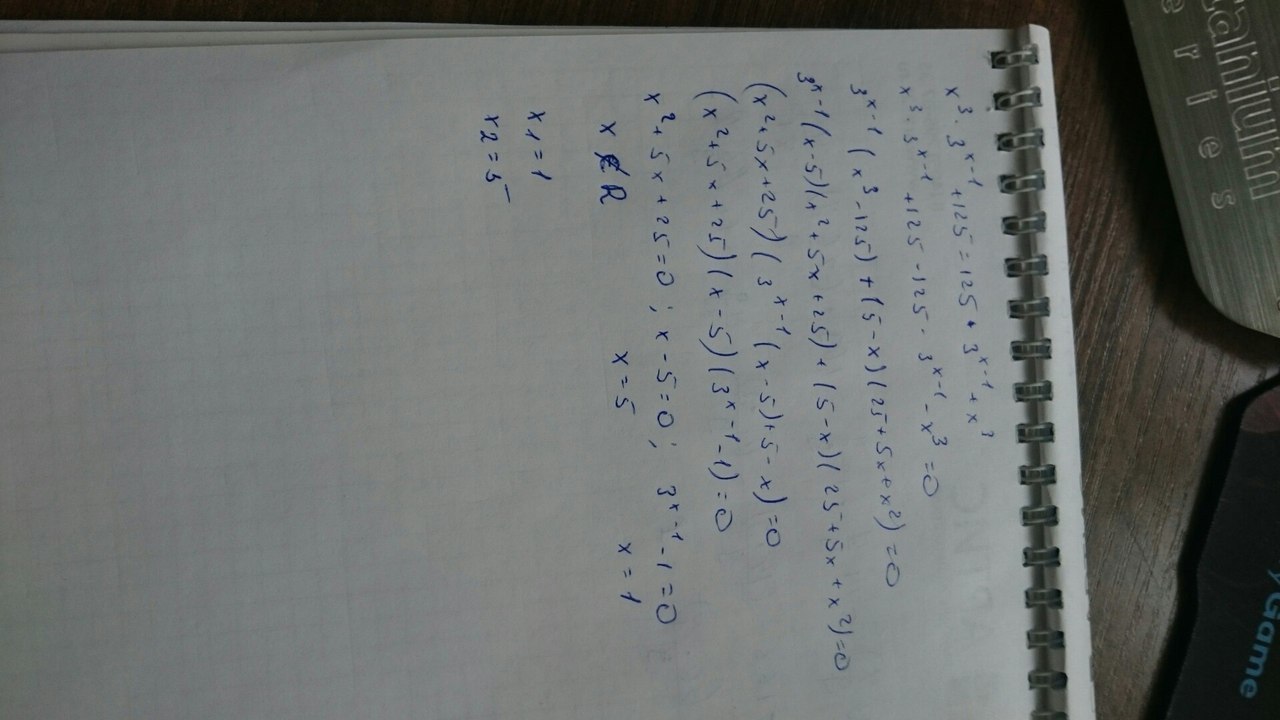 x³·3ˣ⁻¹+125=125·3ˣ⁻¹+x³
x³·3ˣ⁻¹+125-125·3ˣ⁻¹-x³=0
3ˣ⁻¹(x³-125)+(5-x)(25+5x+x²)=0
3ˣ⁻¹(x-5)(x²+5x+25)+(5-x)(25+5x+x²)=0
(x²+5x+25)(3ˣ⁻¹(x-5)+5-x)=0
(x²+5x+25)(x-5)(3ˣ⁻¹-1)=0
x²+5x+25=0; x-5=0; 3ˣ⁻¹-1=0
x∉R x=5 x=1
x1=1
x2=5
series
Game